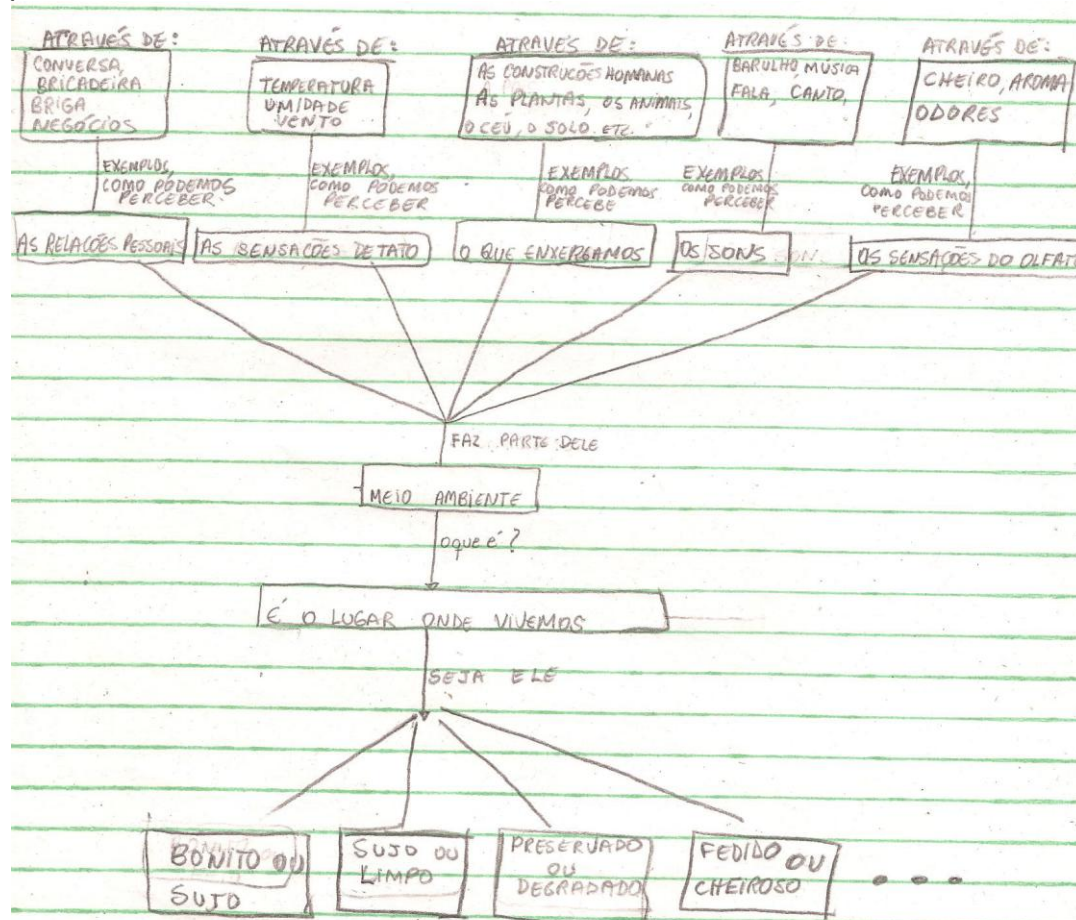 ATRAVÉS DE:
CONVERSA,
BRICADEIRA
BRIGA
NEGÓCIOS
EXEMPLOS,
COMO PODEMOS
PERCEBER:
AS RELACÕES PESSOAIS
ATRAVÉS DE:
TEMPERATURA
UMIDADE
VENTO
EXEMPLOS,
COMO PODEMOS
PERCEBER
AS SENSACÕES DE TATO
ATRAVÉS DE:
AS CONSTRUCÕES HOMANAS
AS PLANTAS, OS ANIMAIS,
O CEÚ, O SOLO ETC.
EXEMPLOS
COMO PODEMOS
PERCEBE
O QUE ENXERGAMOS
ATRAVÉS DE:
BARULHO, MÚSICA
FALA, CANTO,
EXEMPLOS
COMO PODEMOS
PERCEBER
OS SONS
ATRAVÉS DE:
CHEIRO, AROMA
ODORES
EXEMPLOS,
COMO PODEMOS
PERCEBER
OS SENSAÇÕES DO OLFATO
FAZ PARTE DELE
MEIO AMBIENTE
oque é?
É O LUGAR ONDE VIVEMOS
SEJA ELE
BONITO OU
SUJO
SUJO OU
LIMPO
PRESERVADO
OU
DEGRADADO
FEDIDO OU
CHEIROSO
• • •